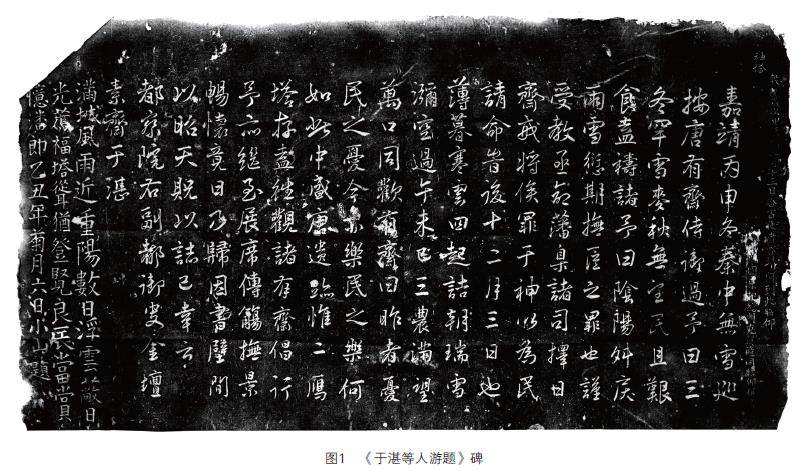 嘉靖丙申冬秦中無雪巡
按唐有齋侍御過予曰三
冬罕雪麥秋無望民且艱
食盍禱諸予曰陰陽舛戾
雨雪愆期撫臣之罪也謹
受教亟命藩臬諸司擇日
齋戒將俟罪于神以為民
請命皆後十二月三日也
薄暮寒雲四起詰朝瑞雪
瀰空過午未已三農滿望
萬口同歡有齋曰昨者憂
民之憂今樂民之樂何
如此中盛唐遺跡惟二鴈
塔存盍往觀諸有齋倡行
予亦繼至展席傳觴撫景
暢懷竟日乃歸因書壁間
以昭天貺以誌已幸云
都察院右副都御史金壇
素齋于湛
滿城風雨近重陽數日浮雲蔽日
光薦福塔登猶登覽良辰當
憶籓即乙丑年菊月六日小山題
图1 《于湛等人游题》碑